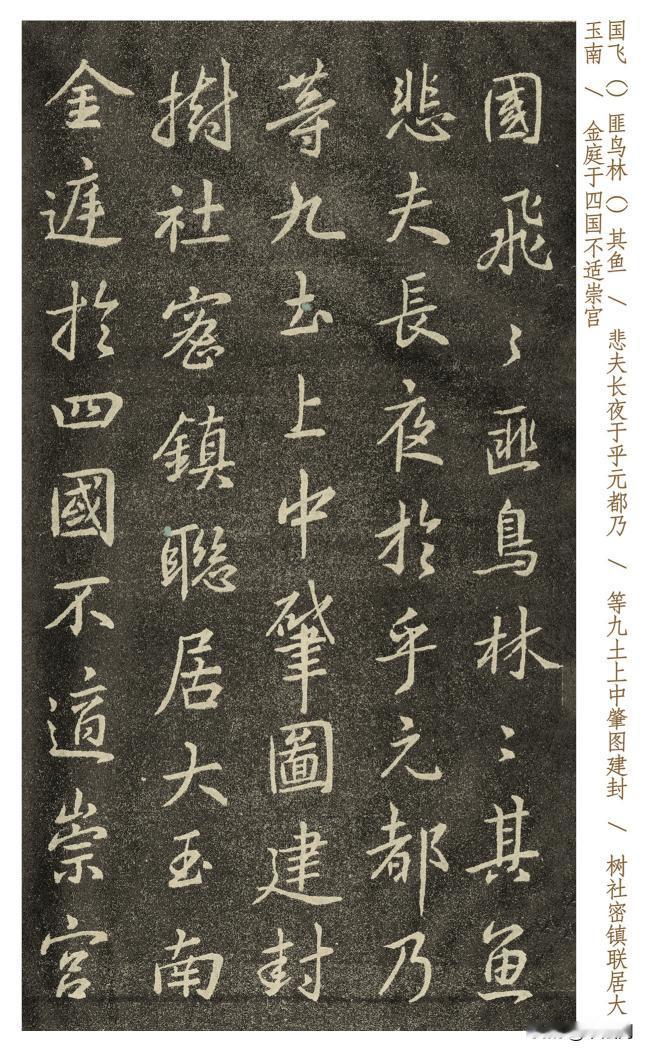 國飛〻匪鳥林〻其魚
悲夫長夜於乎元都乃
等九土上中肇圖建封
樹社密鎮聯居大玉南
金庭於四國不適崇宮
国飞（）匪鸟林（）其鱼 / 悲夫长夜于乎元都乃 / 等九土上中肇图建封 / 树社密镇联居大
玉南 / 金庭于四国不适崇宫